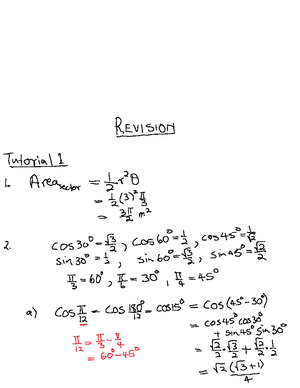 REVISION
Tutorial 1
1. Area sector = 1/2 r²θ
= 1/2 (3)² π/3
= 3π/2 m²
2. cos 30° = √3/2, cos 60° = 1/2, cos 45° = 1/√2
sin 30° = 1/2, sin 60° = √3/2, sin 45° = √2/2
π/3 = 60°, π/6 = 30°, π/4 = 45°
a) Cos π/12 = cos 180°/12 = cos 15° = cos (45° - 30°)
= cos 45° cos 30° + sin 45° sin 30°
π/12 = π/3 - π/4
= √2/2 · √3/2 + √2/2 · 1/2
= 60° - 45°
= √2 (√3 + 1)/4